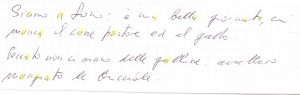 Siamo a : è una bella giornata, ci
manca il cane pastore ed il gatto.
Peccato non ci siano delle galline: avrebbero
mangiato le briciole.